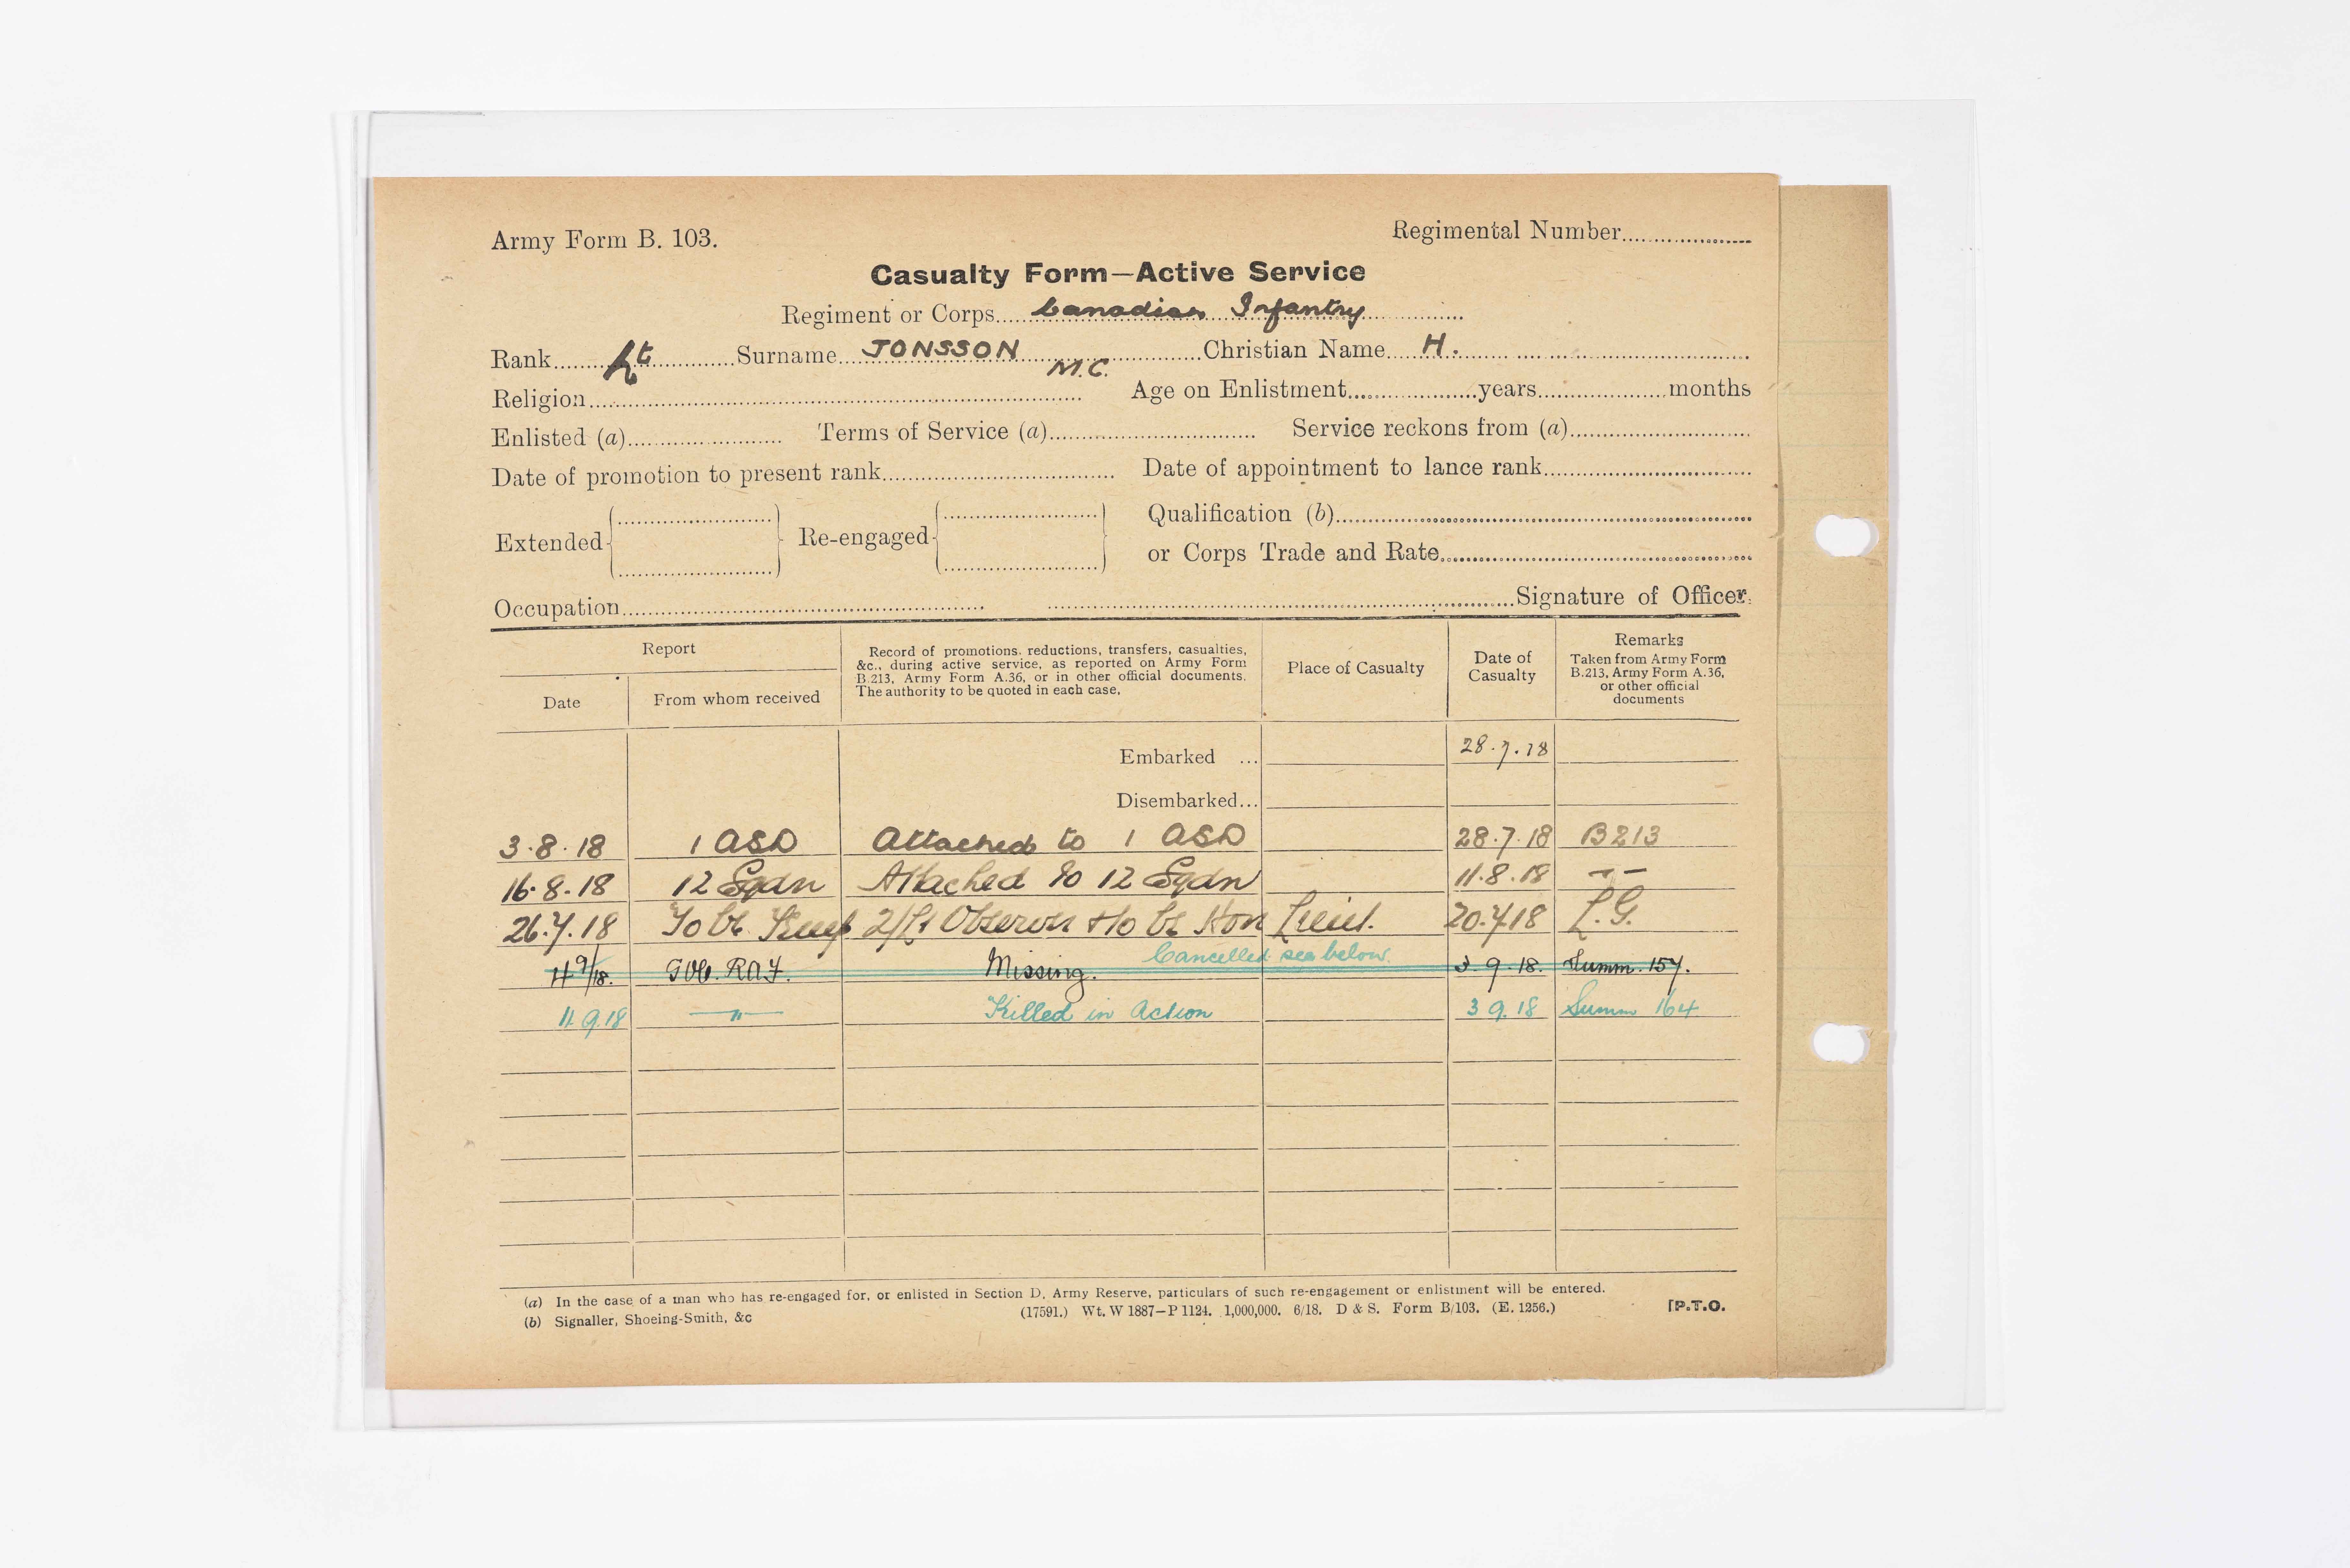 Army Form B. 103.
Regimental Number
Casualty Form—Active Service
Regiment or Corps Canadian Infantry
Rank Lt Surname JONSSON M.C. Christian Name H.
Religion Age on Enlistment years months
Enlisted (a) Terms of Service (a) Service reckons from (a)
Date of promotion to present rank Date of appointment to lance rank
Extended Re-engaged Qualification (b)
or Corps Trade and Rate
Occupation Signature of Officer.
Report
Date
From whom received
Record of promotions, reductions, transfers, casualties,
&c., during active service, as reported on Army Form
B.213, Army Form A.36, or in other official documents.
The authority to be quoted in each case.
Place of Casualty
Date of
Casualty
Remarks
Taken from Army Form
B.213, Army Form A.36,
or other official
documents
Embarked ... 28.7.18
Disembarked...
3.8.18 1 ASD Attached to 1 ASD 28.7.18 B213
16.8.18 12 Sqdn Attached to 12 Sqdn 11.8.18 -"-
26.7.18 To be 2/Lt Observer & to be Hon Lieut. 20.7.18 L.G.
Cancelled see below.
4 9/18. RAF. Missing. 3.9.18. Summ. 157.
11.9.18 " Killed in Action 3 9.18 Summ 164
(a) In the case of a man who has re-engaged for, or enlisted in Section D, Army Reserve, particulars of such re-engagement or enlistment will be entered.
(b) Signaller, Shoeing-Smith, &c
(17591.) Wt. W 1887—P 1124. 1,000,000. 6/18. D & S. Form B/103. (E. 1256.)
[P.T.O.